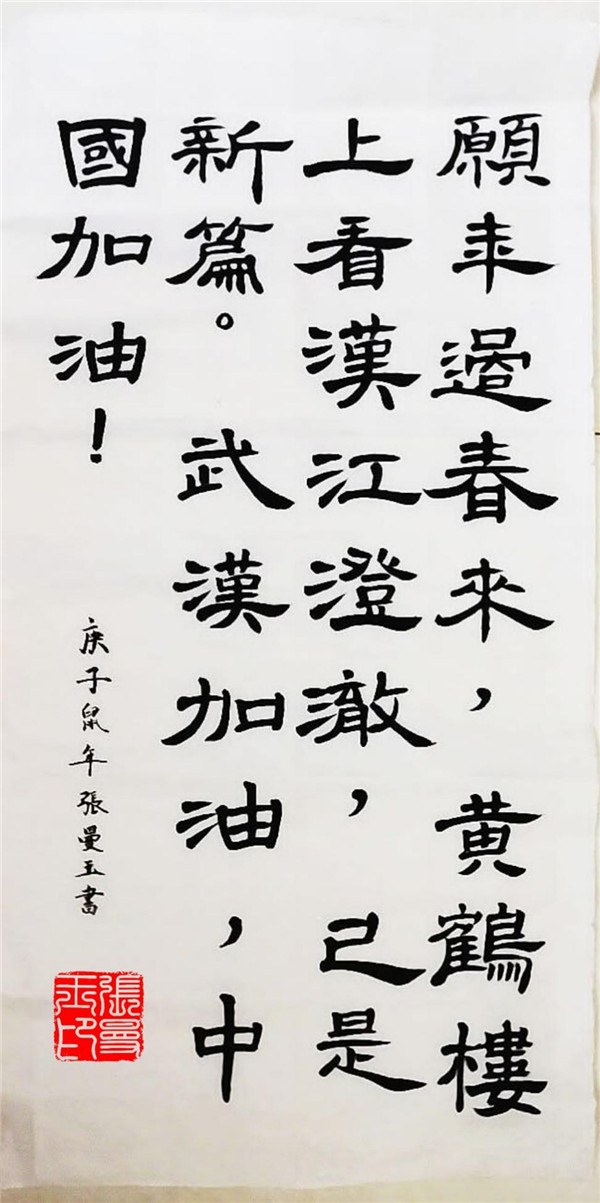 願年過春來，黃鶴樓
上看漢江澄澈，已是
新篇。武漢加油，中
國加油！
庚子鼠年張曼玉書
張曼玉印